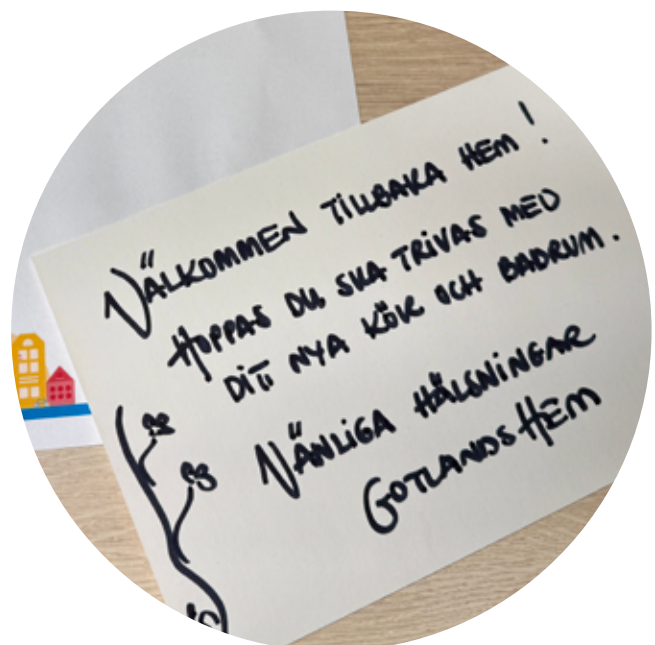 VÄLKOMMEN TILLBAKA HEM!
HOPPAS DU SKA TRIVAS MED
DITT NYA KÖK OCH BADRUM.
VÄNLIGA HÄLSNINGAR
GOTLANDSHEM